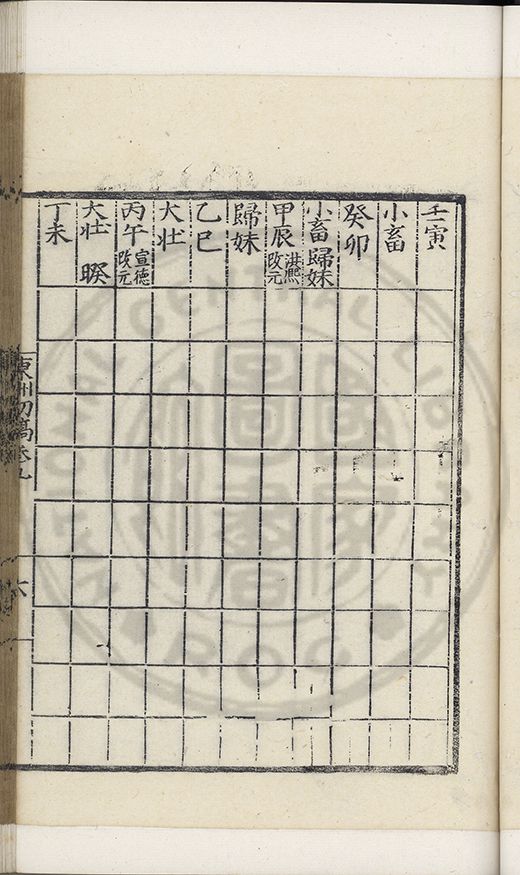 壬寅
小畜
癸卯
小畜 歸妹
甲辰 洪熙改元
歸妹
乙巳
大壯
丙午 宣德改元
大壯 暌
丁未
東洲初稿卷九
六